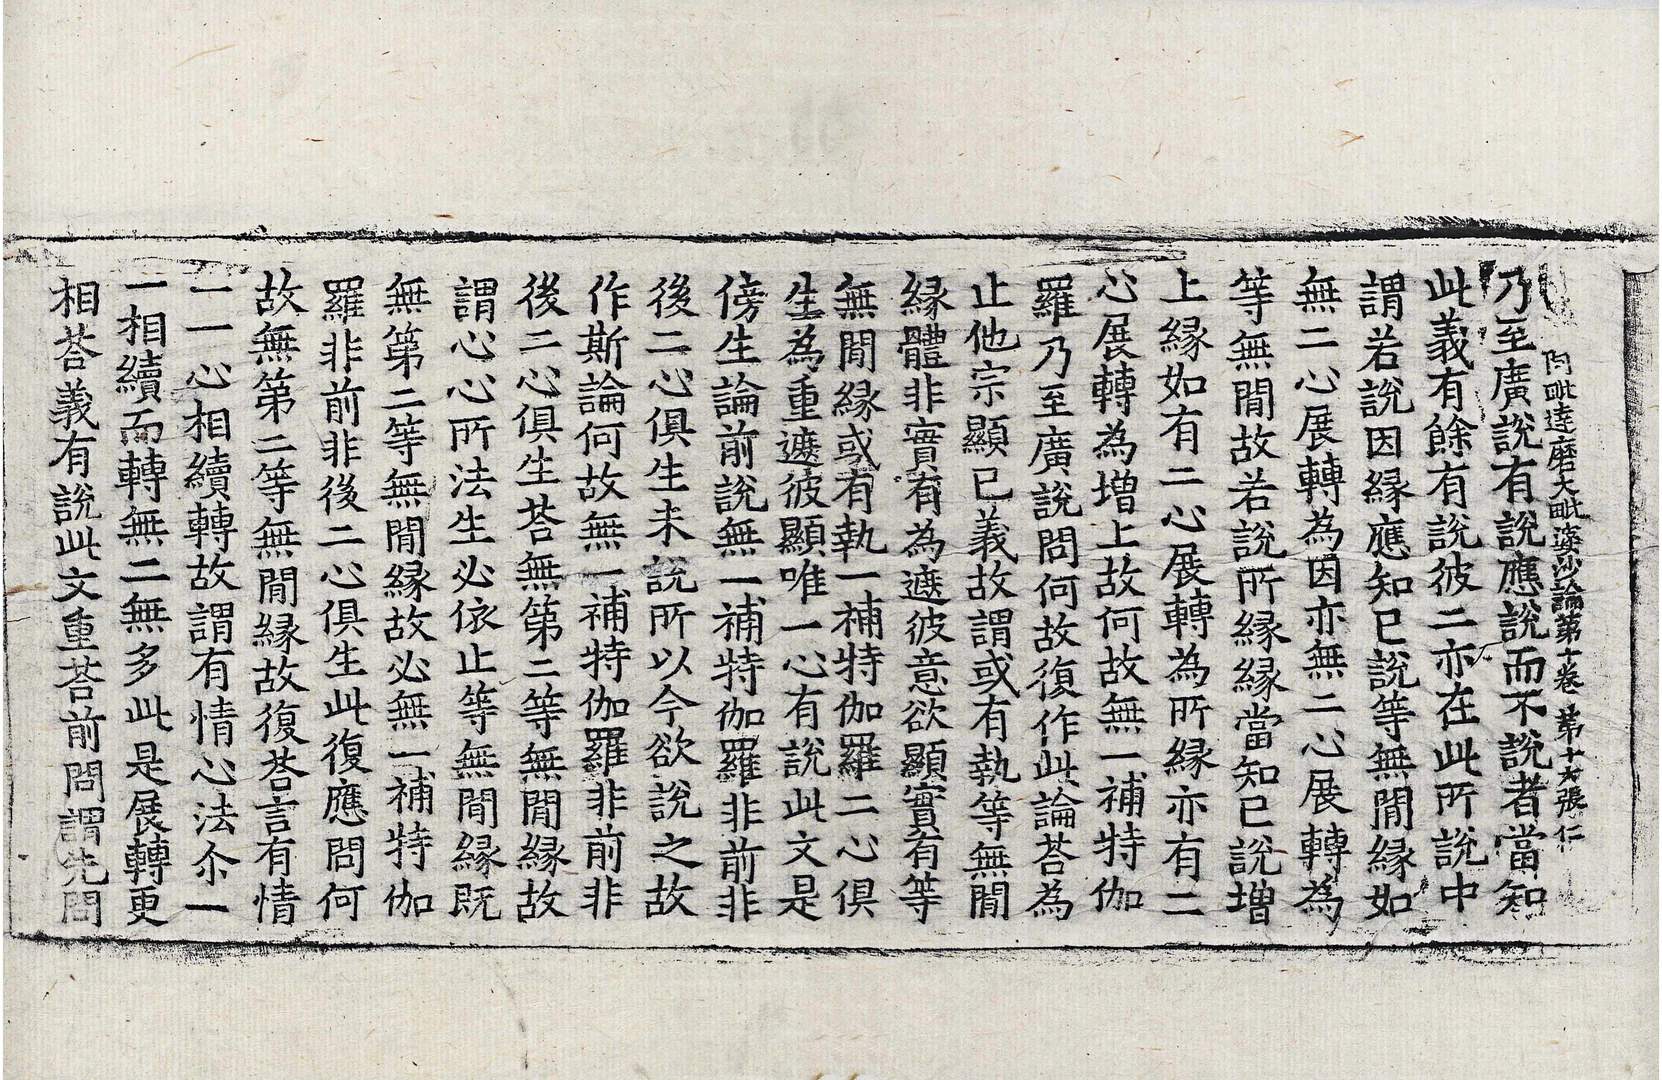 阿毗達磨大毗婆沙論第十卷 第十六張 仁
乃至廣說有說應說而不說者當知
此義有餘有說彼二亦在此所說中
謂若說因緣應知已說等無閒緣如
無二心展轉為因亦無二心展轉為
等無閒故若說所緣緣當知已說增
上緣如有二心展轉為所緣亦有二
心展轉為增上故何故無一補特伽
羅乃至廣說問何故復作此論荅為
止他宗顯已義故謂或有執等無閒
緣體非實有為遮彼意欲顯實有等
無閒緣或有執一補特伽羅二心俱
生為重遮彼顯唯一心有說此文是
傍生論前說無一補特伽羅非前非
後二心俱生未說所以今欲說之故
作斯論何故無一補特伽羅非前非
後二心俱生荅無第二等無閒緣故
謂心心所法生必依止等無閒緣既
無第二等無閒緣故必無一補特伽
羅非前非後二心俱生此復應問何
故無第二等無閒緣故復荅言有情
一一心相續轉故謂有情心法尒一
一相續而轉無二無多此是展轉更
相荅義有說此文重荅前問謂先問